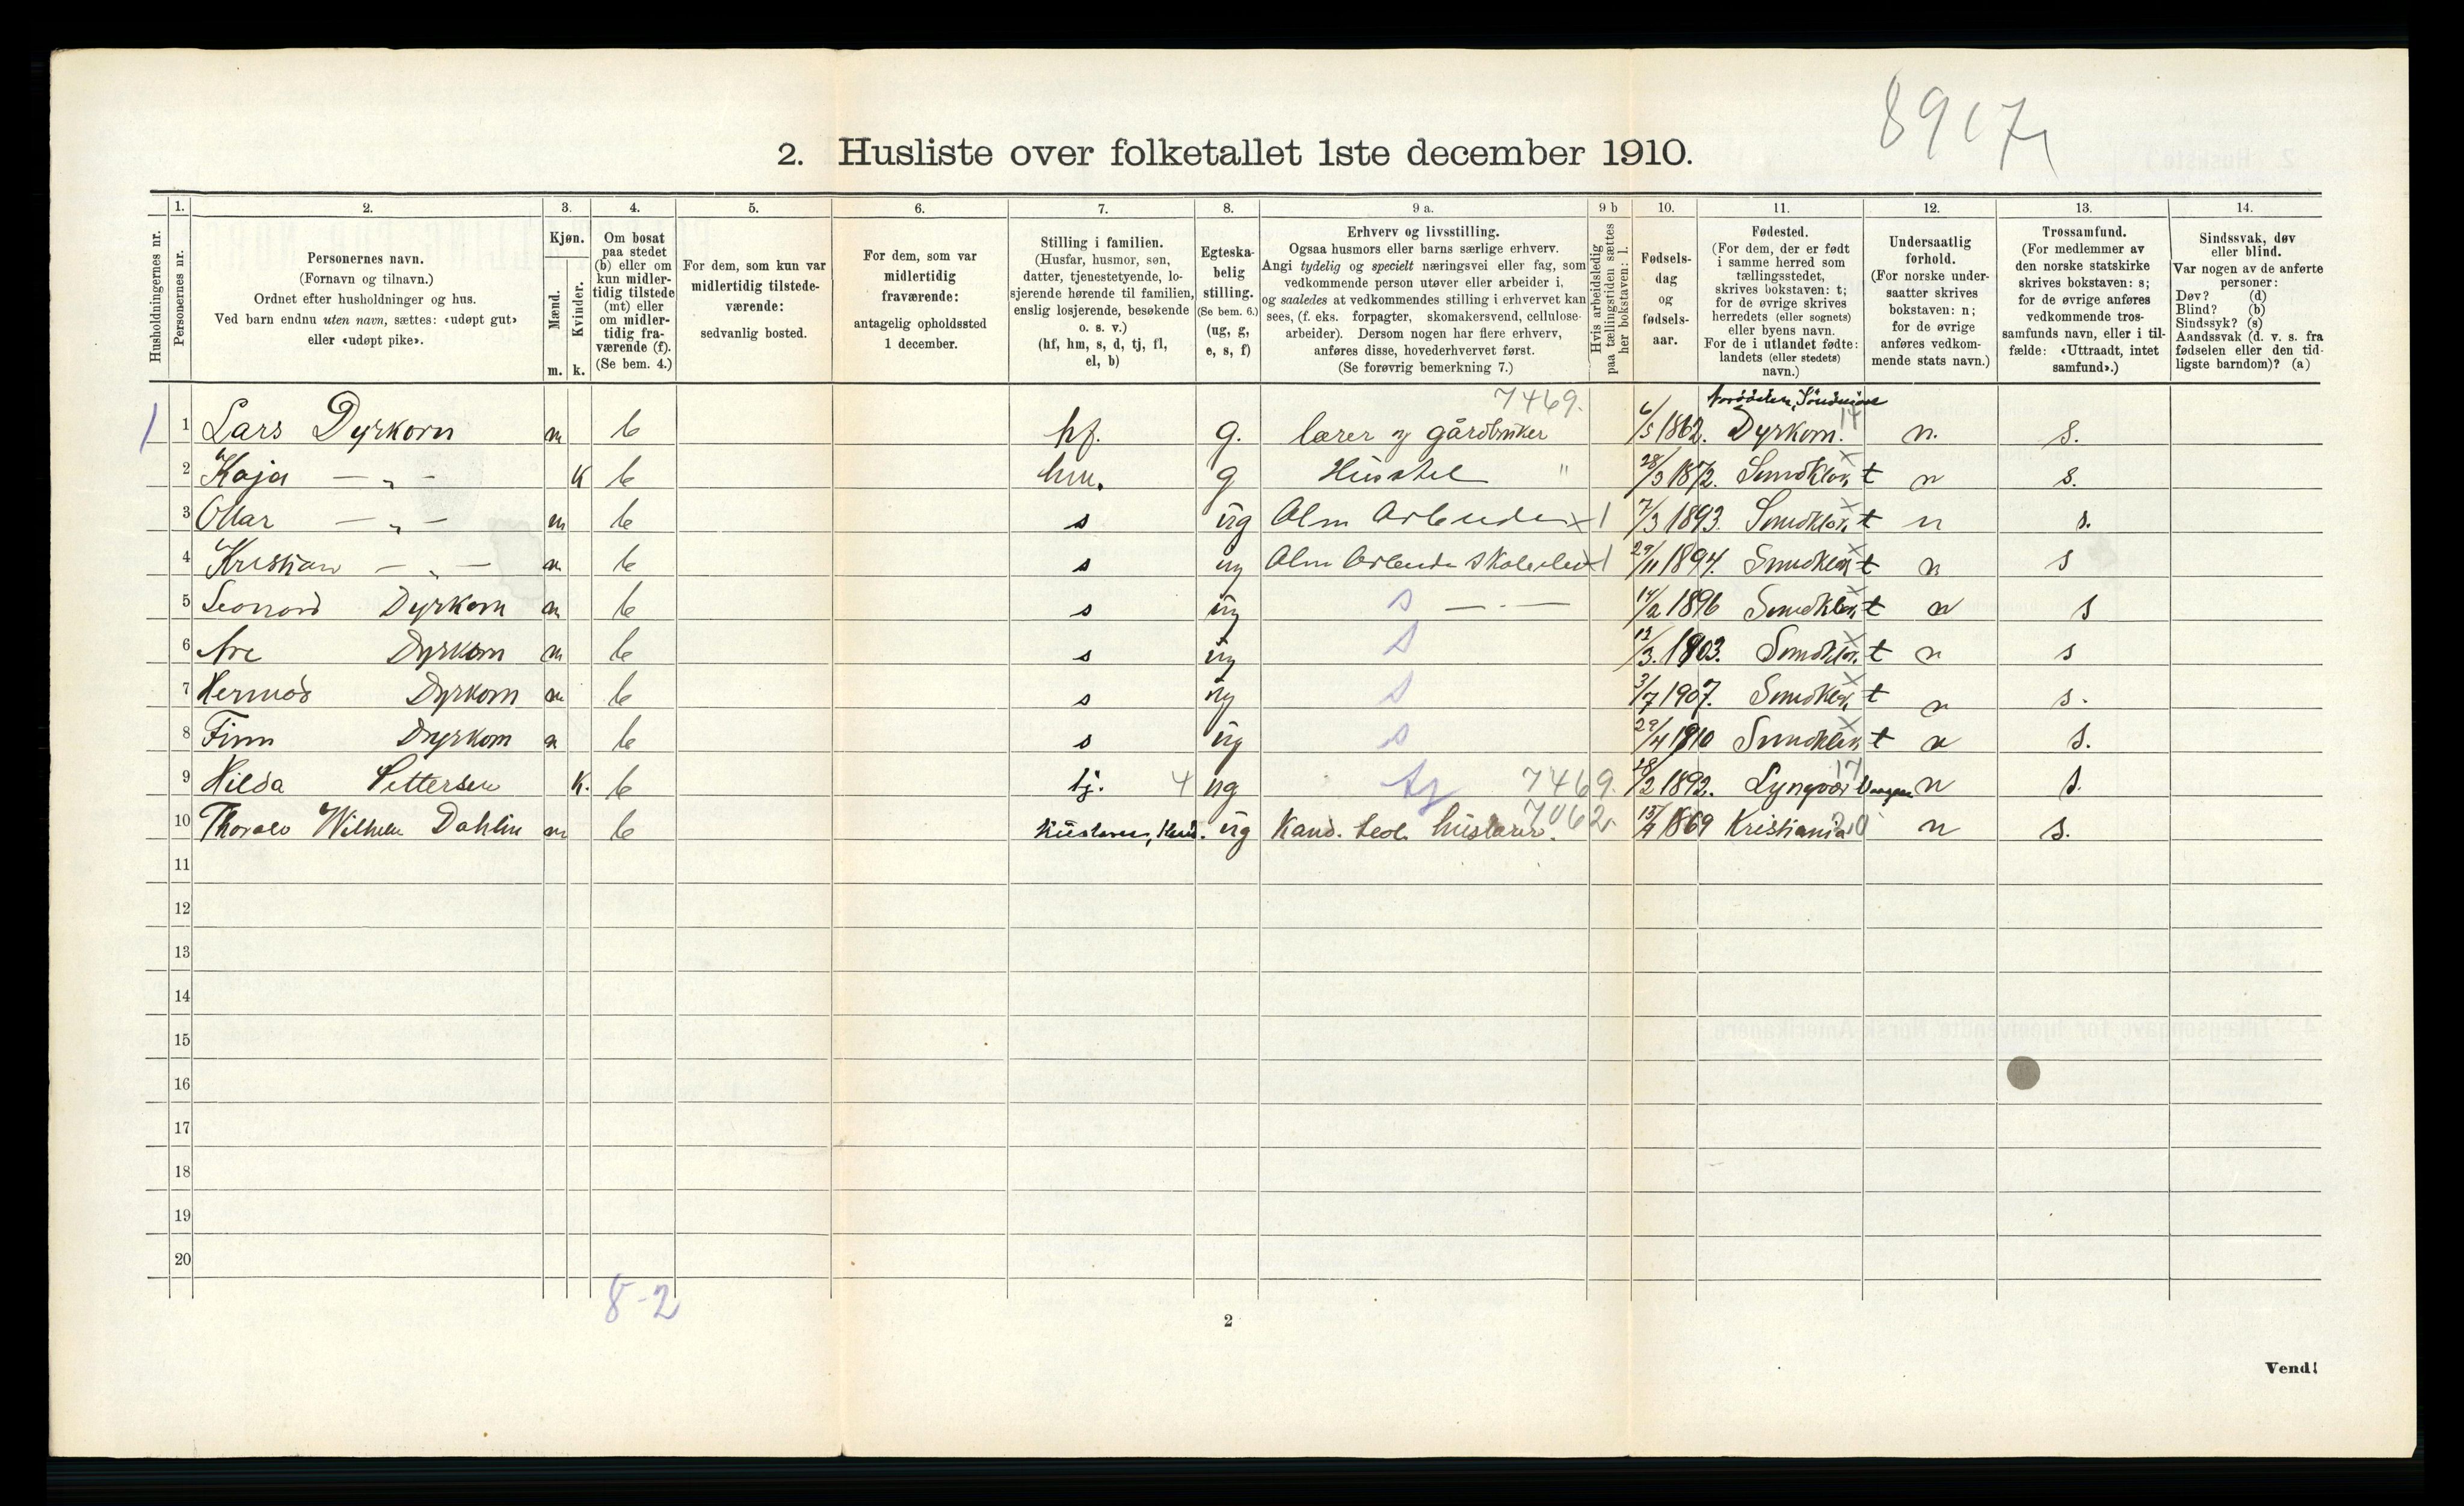 8917
2. Husliste over folketallet 1ste december 1910.
Husholdningernes nr.
1. Personernes nr.
2. Personernes navn.
(Fornavn og tilnavn.)
Ordnet efter husholdninger og hus.
Ved barn endnu uten navn, sættes: «udøpt gut»
eller «udøpt pike».
3. Kjøn.
Mænd. m.
Kvinder. k.
4. Om bosat
paa stedet
(b) eller om
kun midler-
tidig tilstede
(mt) eller
om midler-
tidig fra-
værende (f).
(Se bem. 4.)
5. For dem, som kun var
midlertidig tilstede-
værende:
sedvanlig bosted.
6. For dem, som var
midlertidig
fraværende:
antagelig opholdssted
1 december.
7. Stilling i familien.
(Husfar, husmor, søn,
datter, tjenestetyende, lo-
sjerende hørende til familien,
enslig losjerende, besøkende
o. s. v.)
(hf, hm, s, d, tj, fl,
el, b)
8. Egteska-
belig
stilling.
(Se bem. 6.)
(ug, g,
e, s, f)
9 a. Erhverv og livsstilling.
Ogsaa husmors eller barns særlige erhverv.
Angi tydelig og specielt næringsvei eller fag, som
vedkommende person utøver eller arbeider i,
og saaledes at vedkommendes stilling i erhvervet kan
sees, (f. eks. forpagter, skomakersvend, cellulose-
arbeider). Dersom nogen har flere erhverv,
anføres disse, hovederhvervet først.
(Se forøvrig bemerkning 7.)
9 b Hvis arbeidsledig
paa tællingstiden sættes
her bokstaven: l.
10. Fødsels-
dag
og
fødsels-
aar.
11. Fødested.
(For dem, der er født
i samme herred som
tællingsstedet,
skrives bokstaven: t;
for de øvrige skrives
herredets (eller sognets)
eller byens navn.
For de i utlandet fødte:
landets (eller stedets)
navn.)
12. Undersaatlig
forhold.
(For norske under-
saatter skrives
bokstaven: n;
for de øvrige
anføres vedkom-
mende stats navn.)
13. Trossamfund.
(For medlemmer av
den norske statskirke
skrives bokstaven: s;
for de øvrige anføres
vedkommende tros-
samfunds navn, eller i til-
fælde: «Uttraadt, intet
samfund».)
14. Sindssvak, døv
eller blind.
Var nogen av de anførte
personer:
Døv? (d)
Blind? (b)
Sindssyk? (s)
Aandssvak (d. v. s. fra
fødselen eller den tid-
ligste barndom)? (a)
7469.
1 1 Lars Dyrkorn m b hf. g. lærer og gårdbruker 6/5 1862. Dyrkorn. 14 n. s.
2 Kaja — „ — k b hm. g Husstel " 28/3 1872. t n s.
3 — „ — m b s ug Alm Arbeider x l 7/3 1893. t n s.
4 Kristian — „ — m b s ug Alm Arbeide x l 29/11 1894. t n s
5 Leonard Dyrkorn m b s ug s — „ — 14/2 1896 t n s
6 Are Dyrkorn m b s ug s 12/3. 1903. t n s
7 Hermod Dyrkorn m b s ug s 3/7 1907. t n s.
8 Finn Dyrkorn m b s ug s 29/4 1910 t n s.
9 Hilda Pettersen k. b tj. 4 ug tj 7469. 28/2 1892. Lyngvær 17 n s.
10 Thoralv Wilhelm Dahlin m b huslærer, ug Kand. teol. huslærer. 7062 13/4 1869 Kristiania n s.
11
12
13
14
15
16
17
18
19
20
8-2
2
Vend!